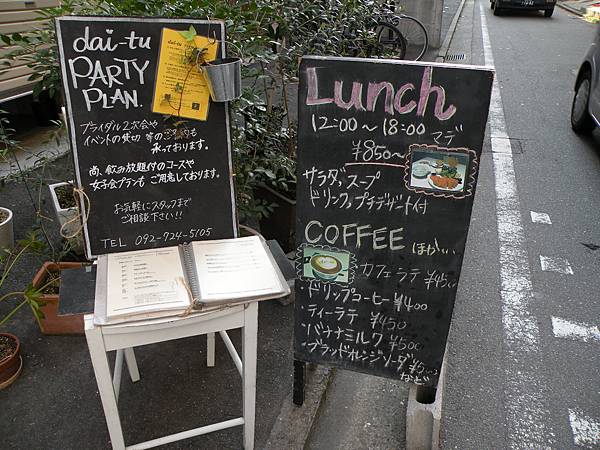 dai-tu
PARTY
PLAN.
ブライダル2次会や
イベントの貸切 等のご予約も
承っております。
尚、飲み放題付のコースや
女子会プランもご用意しております。
お気軽にスタッフまで
ご相談下さい!!
TEL 092-724-5105
dai-tu
Lunch
12:00～18:00マデ
¥850～
サラダ、スープ
ドリンク、プチデザート付
COFFEE ほか
カフェラテ ¥450
・ドリップコーヒー ¥400
ティーラテ ¥450
・バナナミルク ¥500
・ブラッドオレンジソーダ
など